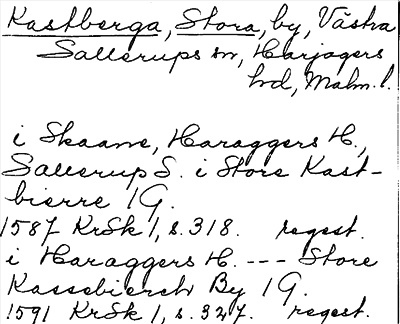 Kastberga, Stora, by, Västra
Sallerups sn, Harjagers
hd, Malm. l.
i Skaane, Haraggers H.,
Sallerup S. i Store Kast-
bierre 1 G.
1587 KrSk 1, s. 318. regest.
i Haraggers H. --- Store
Kassebierch By 1 G.
1591 KrSk 1, s. 327. regest.